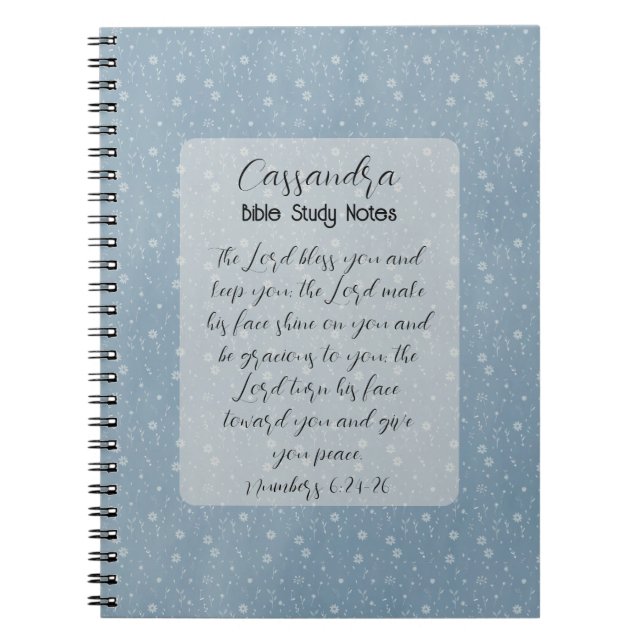 Cassandra
Bible Study Notes
The Lord bless you and
keep you; the Lord make
his face shine on you and
be gracious to you; the
Lord turn his face
toward you and give
you peace.
Numbers 6:24-26